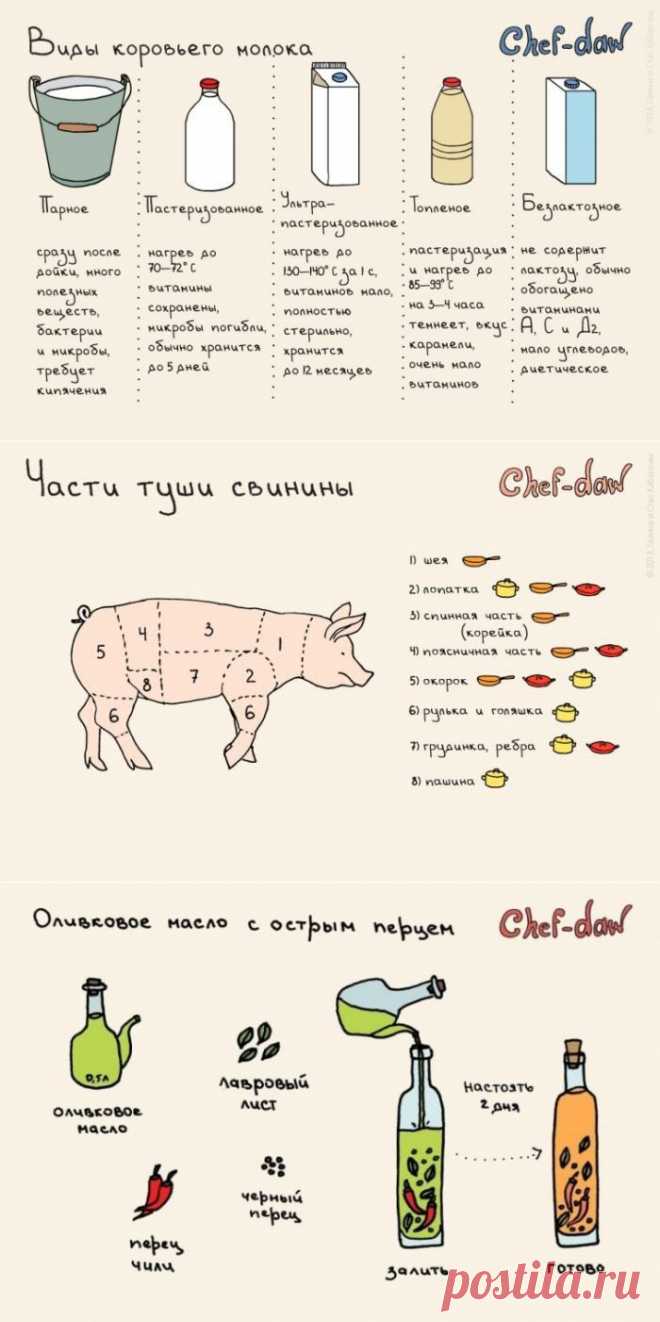 Виды коровьего молока
Chef-daw
Парное
сразу после
дойки, много
полезных
веществ,
бактерии
и микробы,
требует
кипячения
Пастеризованное
нагрев до
70–72° С
витамины
сохранены,
микробы погибли,
обычно хранится
до 5 дней
Ультра-
пастеризованное
нагрев до
130–140° С за 1 с,
витаминов мало,
полностью
стерильно,
хранится
до 12 месяцев
Топленое
пастеризация
и нагрев до
85–99° С
на 3–4 часа
темнеет, вкус
карамели,
очень мало
витаминов
Безлактозное
не содержит
лактозу, обычно
обогащено
витаминами
А, С и Д2,
мало углеводов,
диетическое
Части туши свинины
Chef-daw
5
4
3
1
8
7
2
6
6
1) шея
2) лопатка
3) спинная часть
(корейка)
4) поясничная часть
5) окорок
6) рулька и голяшка
7) грудинка, ребра
8) пашина
Оливковое масло с острым перцем
Chef-daw
0,5л
оливковое
масло
лавровый
лист
перец
чили
черный
перец
залить
настоять
2 дня
готово
postila.ru